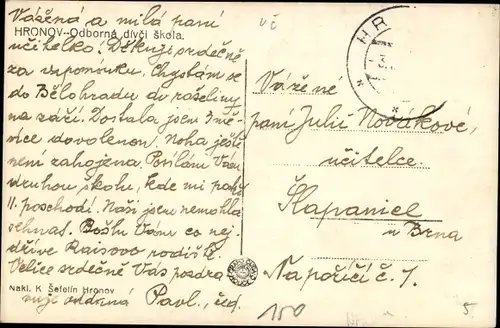 Vážená a milá paní
HRONOV--Odborná dívčí škola.
učitelko. Děkuji srdečně
za vzpomínku. Chystám se
do Bělohradu do rašeliny
na září. Dostala jsem
síce dovolenou. Noha ještě
není zahojena. Posílám Vám
druhou školu, kde mi
II. poschodí. Naši jsem nemohla
sehnat. Pošlu Vám co nej-
dříve Raisovo rodiště.
Velice srdečně Vás pozdra
Nakl. K. Šefelín Hronov
vuje oddaná Pavl.
HR
Vážené
paní Julii Novákové,
učitelce.
Šlapanice
u Brna
Na poříčí č. 1.
150
5